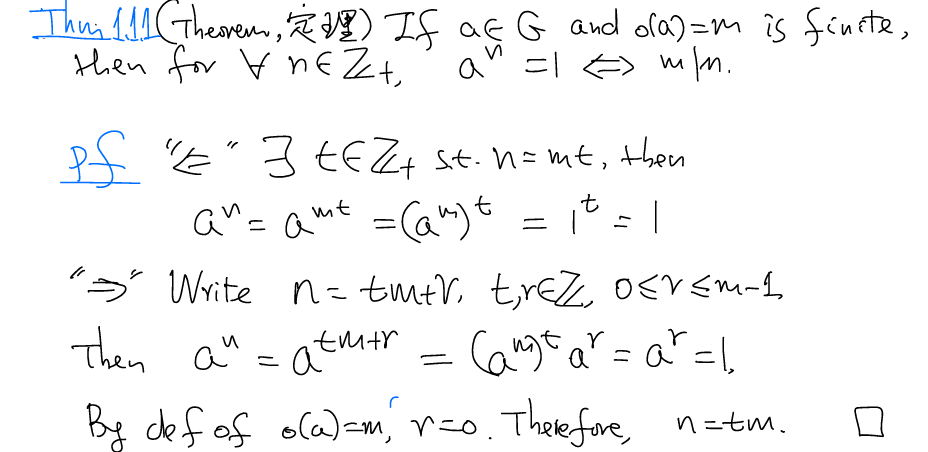 Thm 1.1.1 (Theorem, 定理) If a∈G and o(a)=m is finite,
then for ∀ n∈ℤ₊, aⁿ=1 ⇔ m|n.
pf "⇐" ∃ t∈ℤ₊ s.t. n=mt, then
aⁿ = a^{mt} = (a^m)^t = 1^t = 1
"⇒" Write n = tm+r, t,r∈ℤ, 0≤r≤m-1,
Then aⁿ = a^{tm+r} = (a^m)^t a^r = a^r = 1,
By def of o(a)=m, r=0. Therefore, n=tm. □